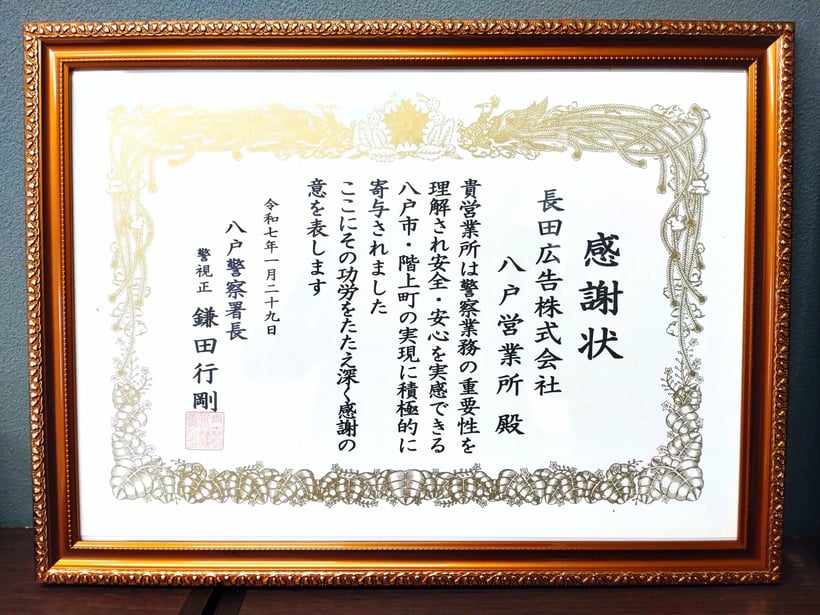 感謝状
長田広告株式会社
八戸営業所 殿
貴営業所は警察業務の重要性を
理解され安全・安心を実感できる
八戸市・階上町の実現に積極的に
寄与されました
ここにその功労をたたえ深く感謝の
意を表します
令和七年一月二十九日
八戸警察署長
警視正 鎌田行剛